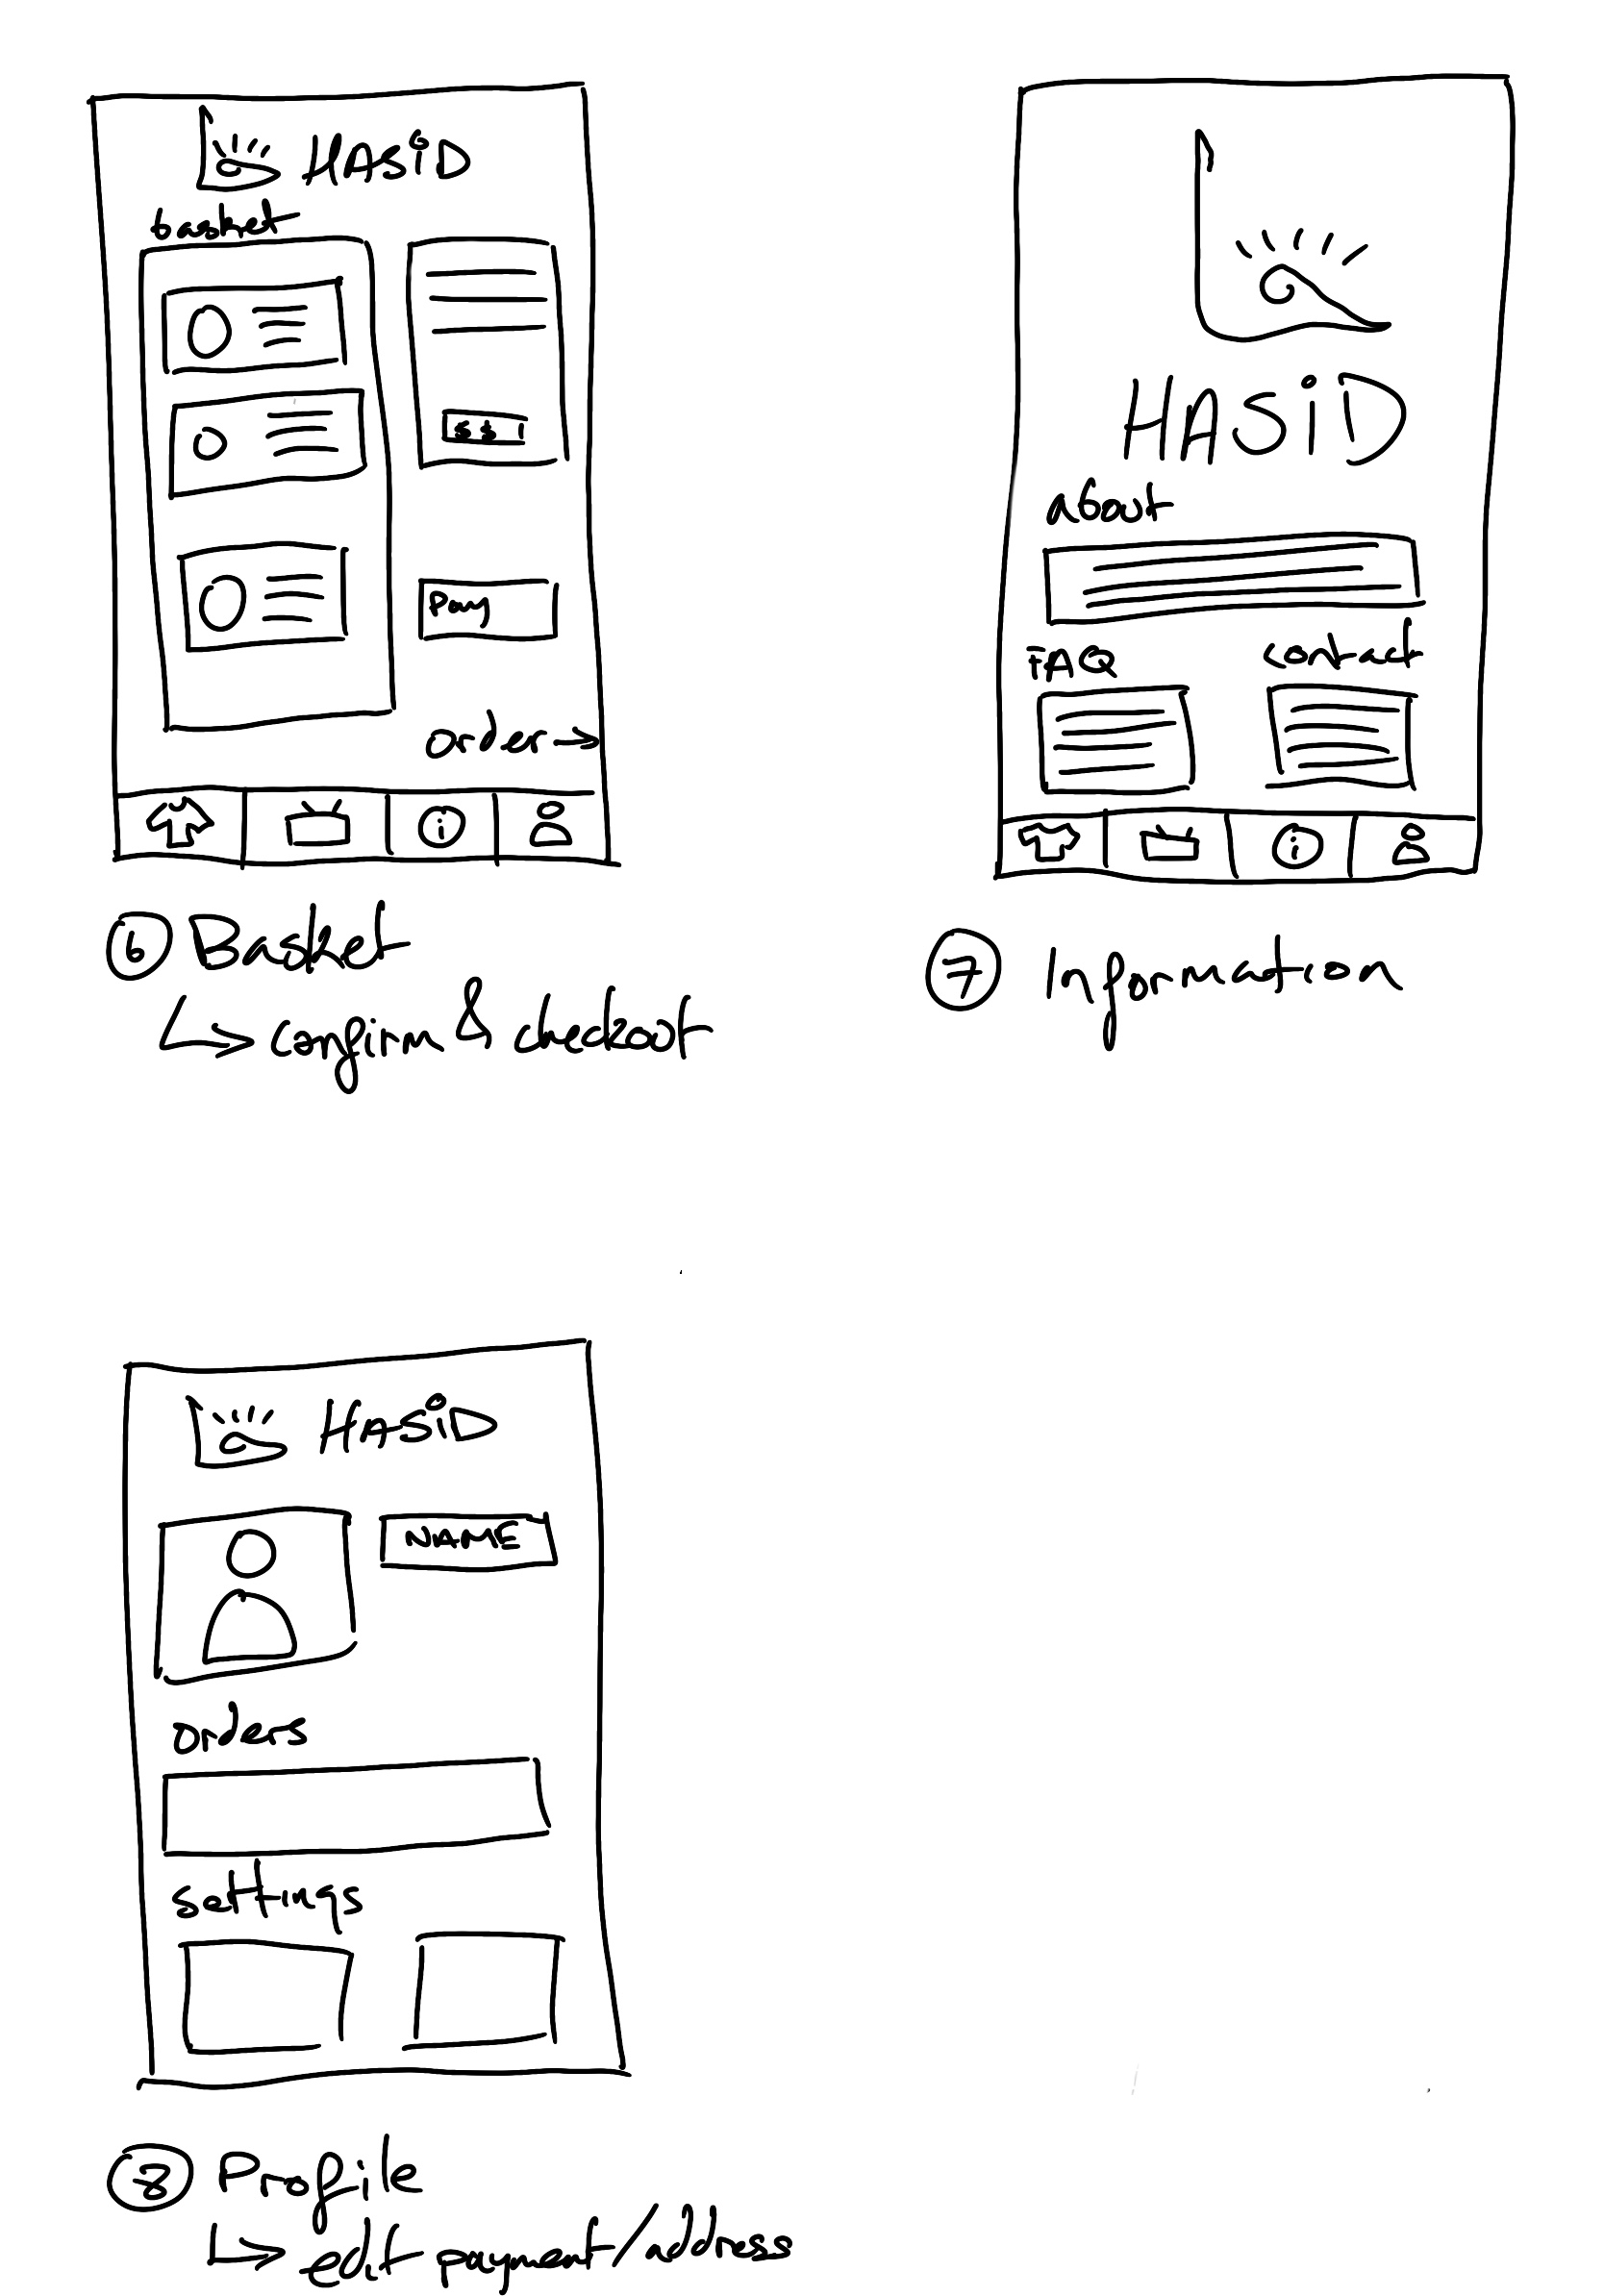 HASiD
basket
$ $ |
Pay
order →
i
6 Basket
↳ confirm & checkout
HASiD
about
FAQ
contact
i
7 Information
HASiD
NAME
orders
settings
8 Profile
↳ edit payment/address